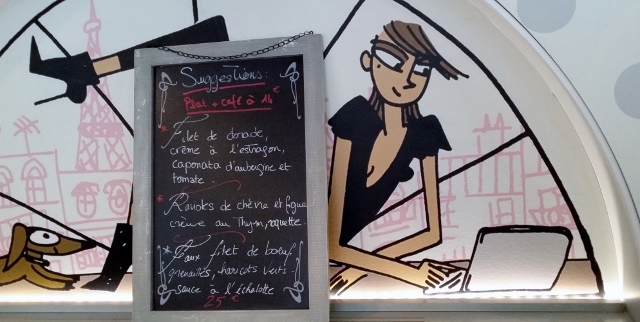 Suggestions:
Plat + café à 14€
* Filet de dorade,
crème à l'estragon,
caponata d'aubergine et
tomate
* Ravioles de chèvre et figue
crème au Thym, roquette.
* Faux filet de bœuf
grenailles, haricots verts.
sauce à l'échalotte
25 €